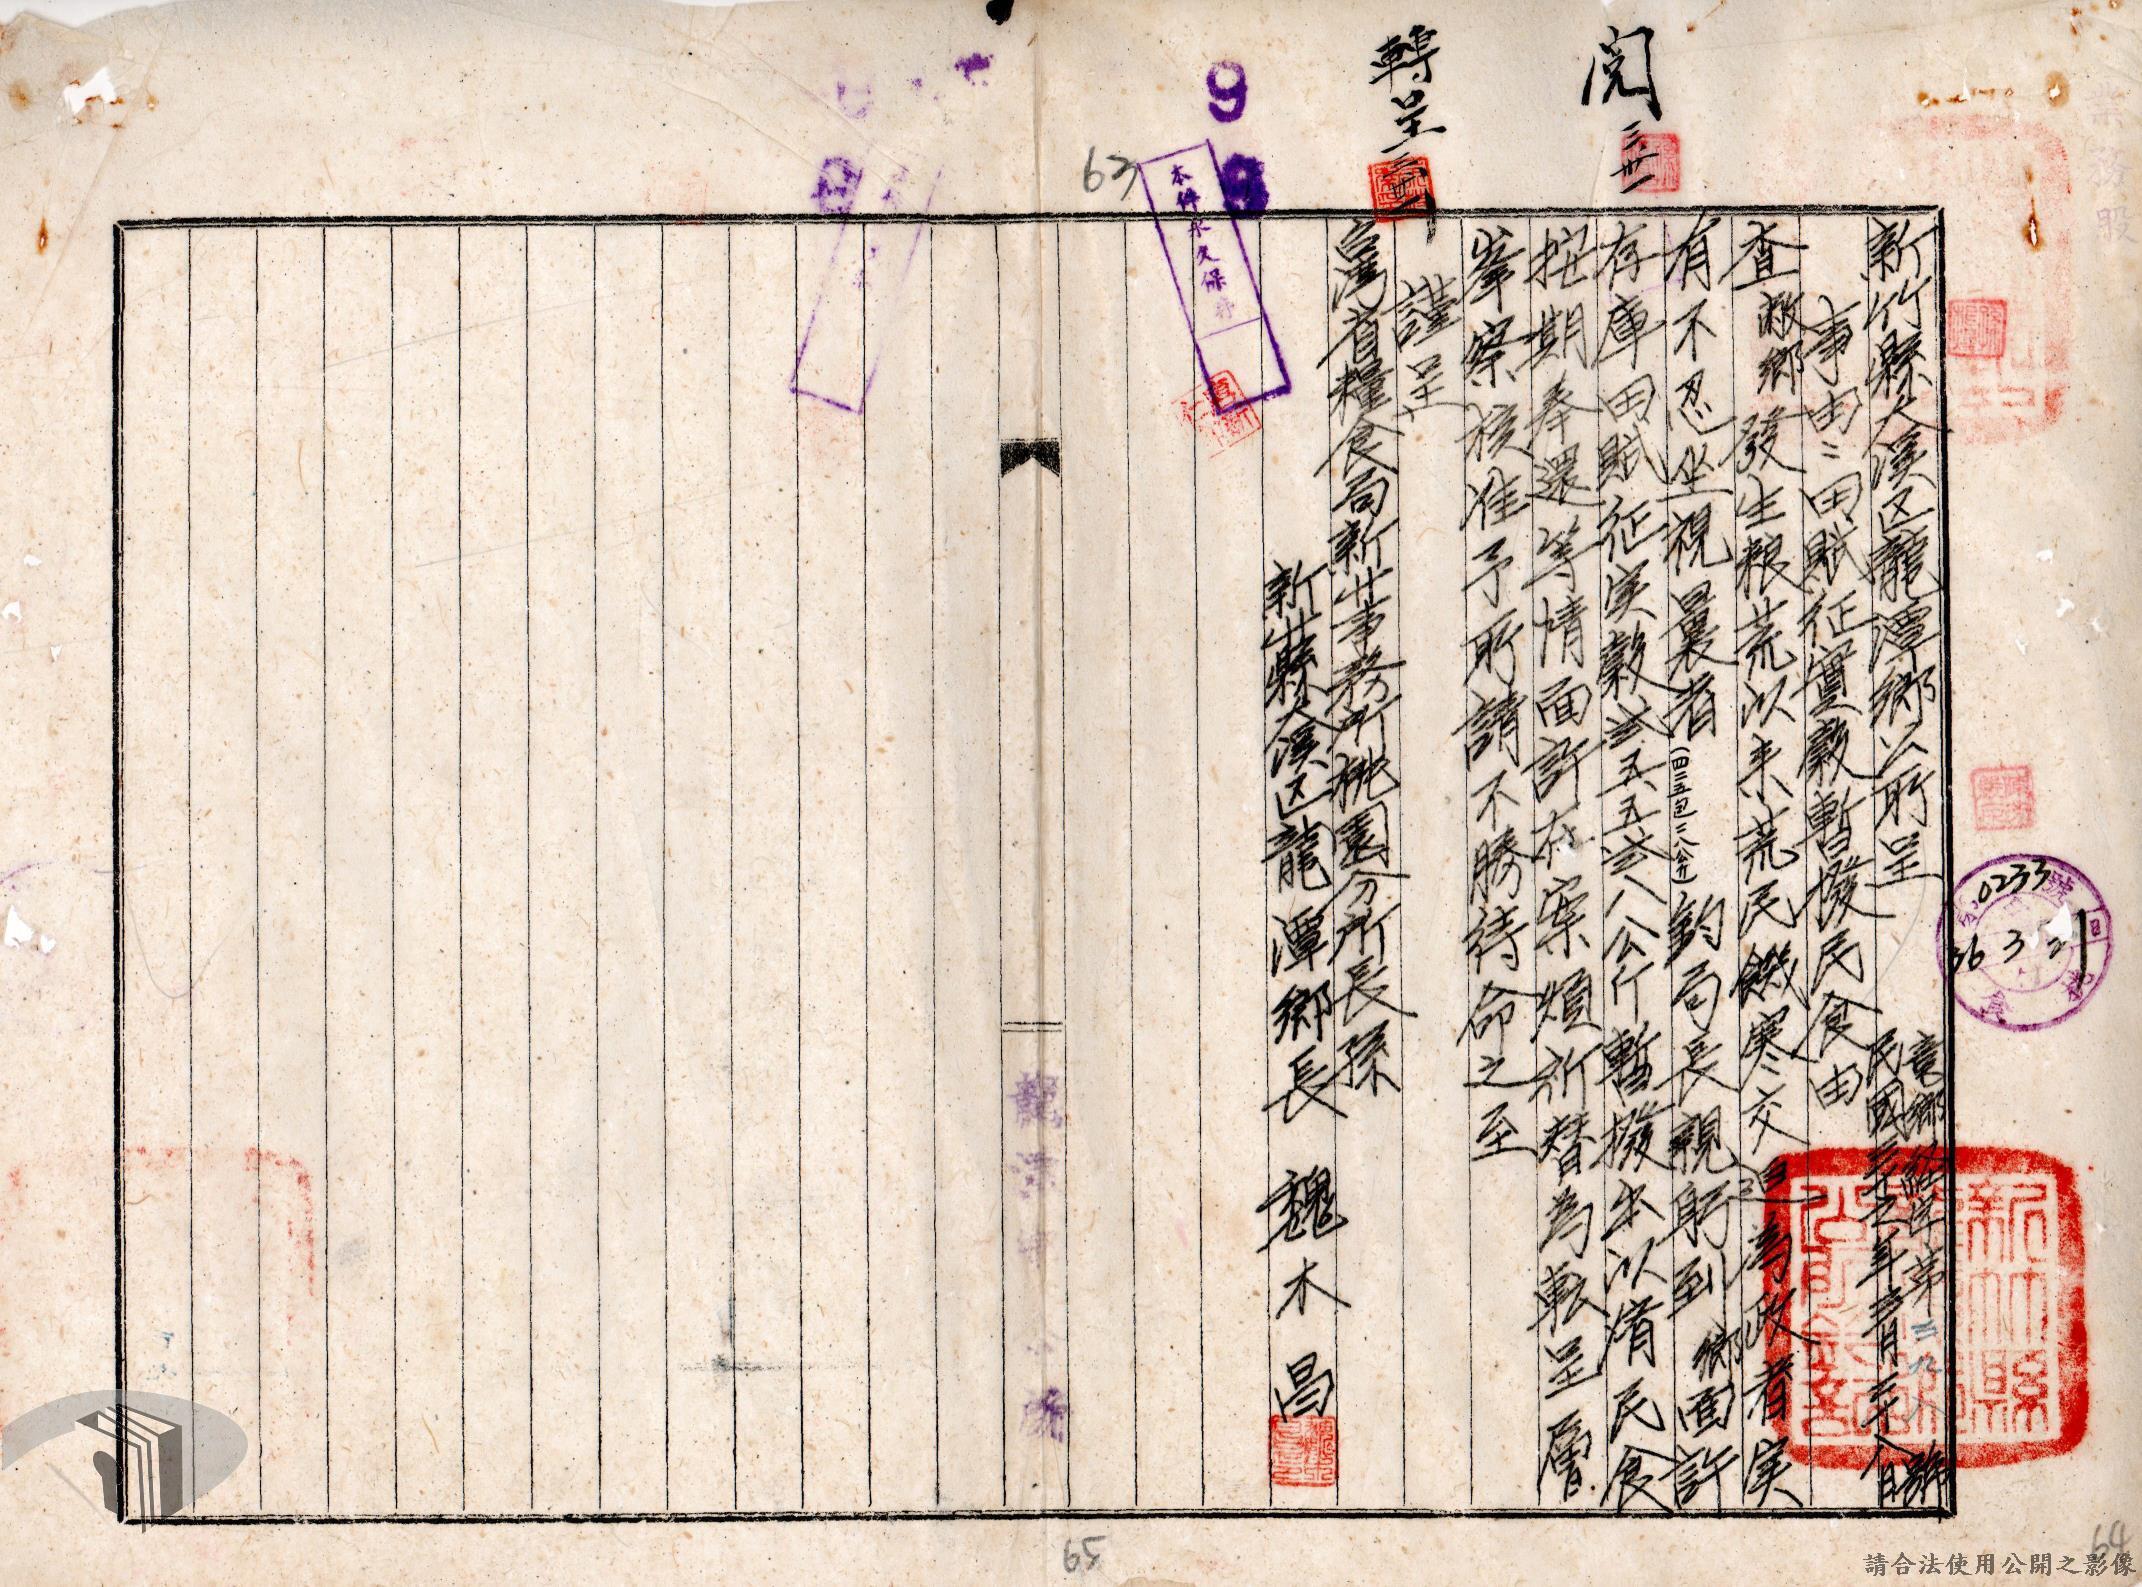 閱 三卅一
轉呈 三卅一
新竹縣大溪区龍潭鄉公所呈
竜鄉経字第三 八號
民國三十六年 月二十八日
事由：田賦征實穀暫撥民食由
查敝鄉發生粮荒以来荒民饑寒交迫為政者実
有不忍坐視曩者(日三五包二八公斤)鈞局長親躬到鄉面許
存庫田賦征実穀弍五五弍八公斤暫撥出以濟民食
按期奉還等情面許在案煩祈替為転呈層
峯察核准予所請不勝待命之至
謹呈
台湾省糧食局新竹事務所桃園分所長孫
新竹縣大溪区龍潭鄉長 魏木昌
本件永久保存
0233
36 3 21
9
9
63
65
64
新竹縣
請合法使用公開之影像